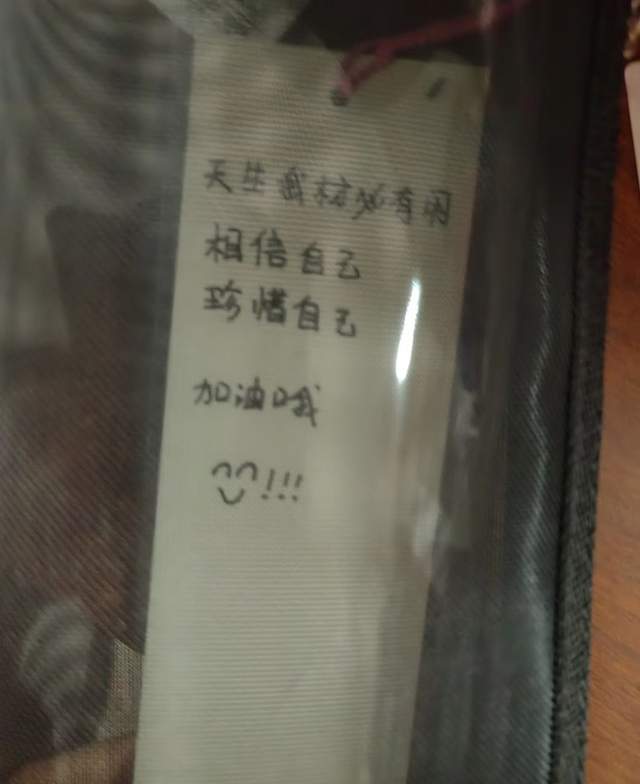 天生我材必有用
相信自己
珍惜自己
加油哦
!!!